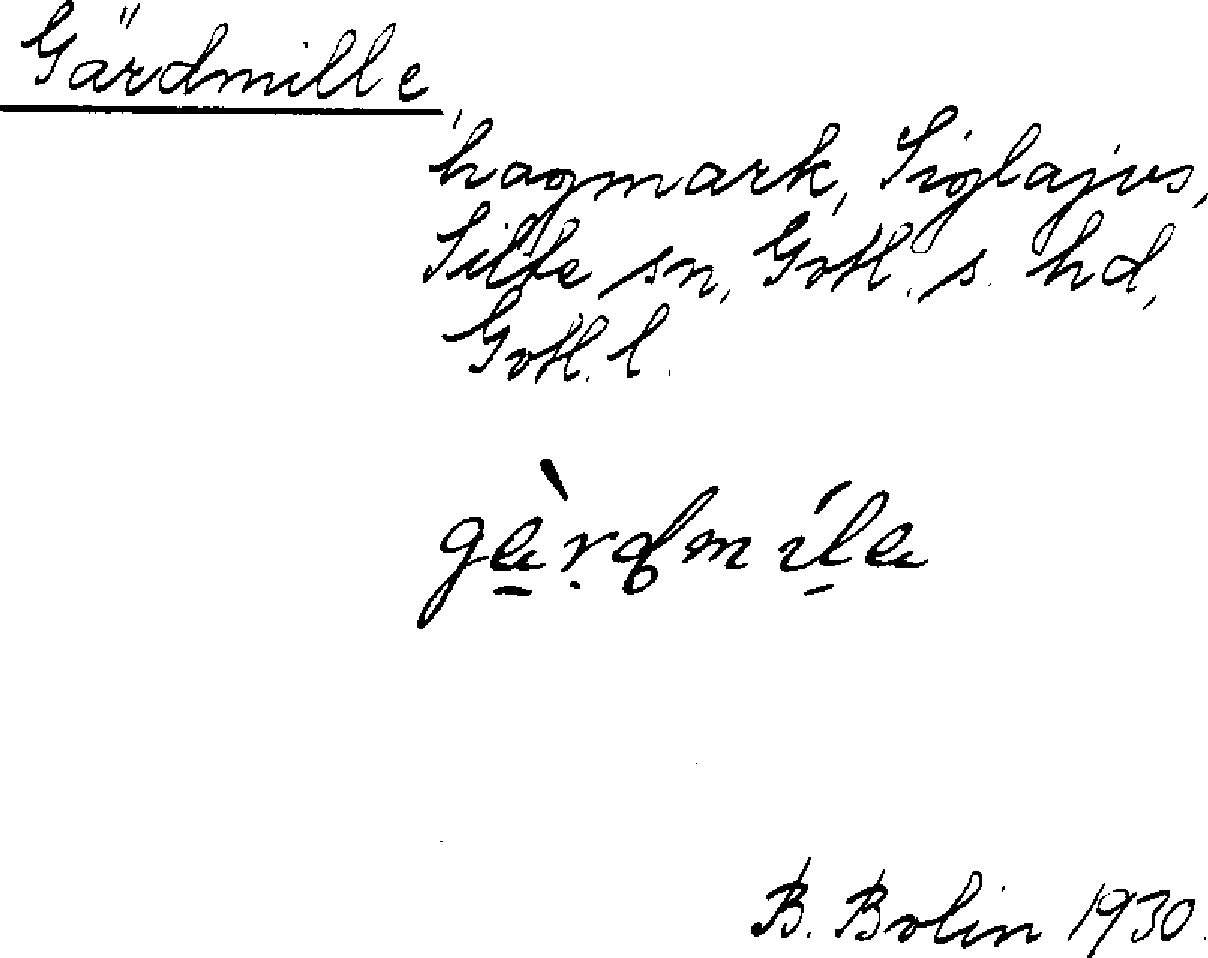 Gärdmille,
hagmark, Siglajvs,
Silte sn, Gotl. s. hd,
Gotl. l.
B. Bolin 1930.